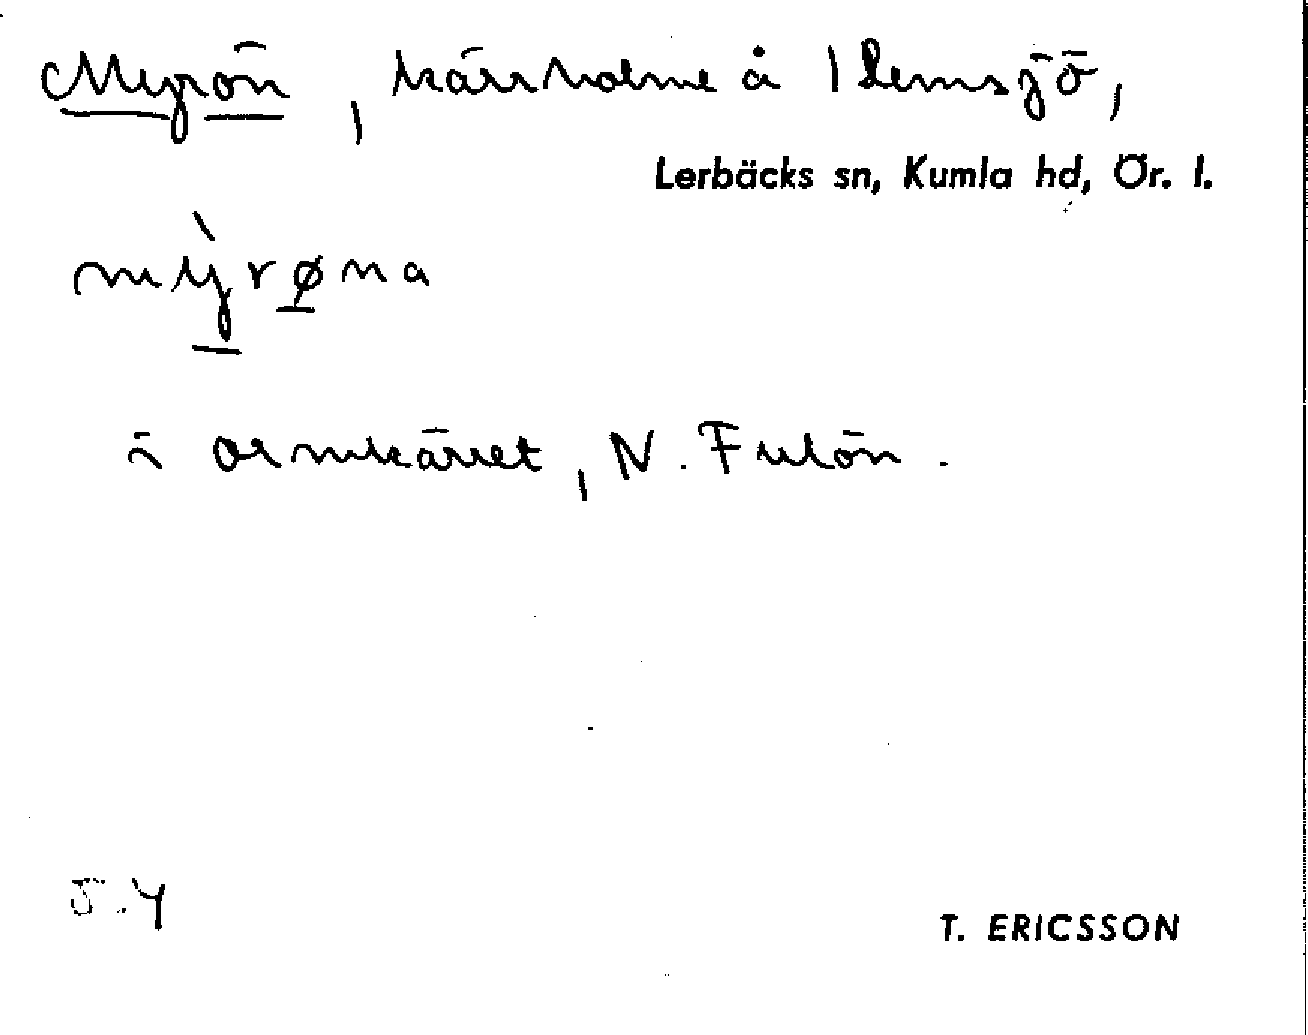 Myrön, kärrholme å Ilemsjö,
Lerbäcks sn, Kumla hd, Ör. l.
mỳrøna
i ormkärret, N. Fulön.
5.4
T. ERICSSON